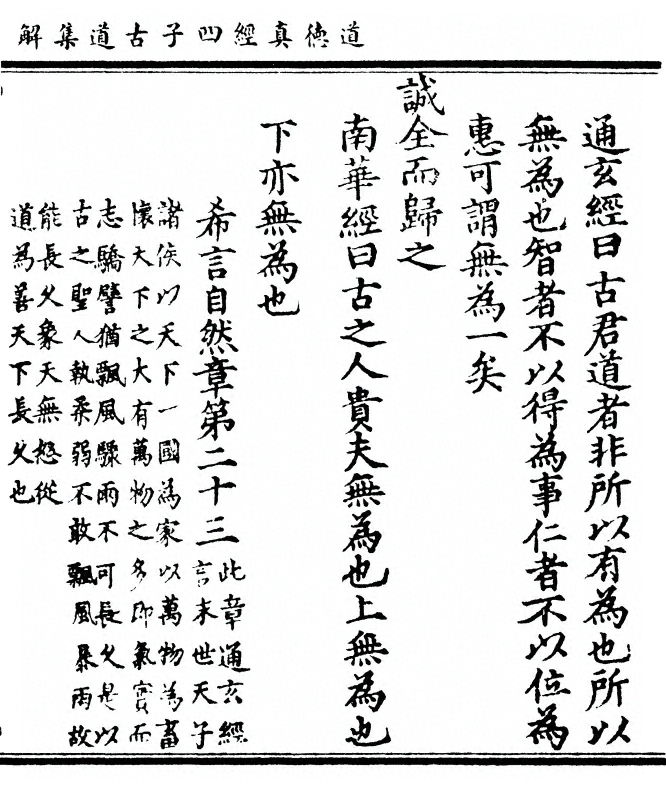 道德真經四子古道集解
通玄經曰古君道者非所以有為也所以
無為也智者不以得為事仁者不以位為
惠可謂無為一矣
誠全而歸之
南華經曰古之人貴夫無為也上無為也
下亦無為也
希言自然章第二十三
此章通玄經
言末世天子
諸侯以天下一國為家以萬物為畜
懷大下之大有萬物之多即氣實而
志驕譬猶飄風驟雨不可長久是以
古之聖人執柔弱不敢飄風暴雨故
能長久象天無怒從
道為善天下長久也